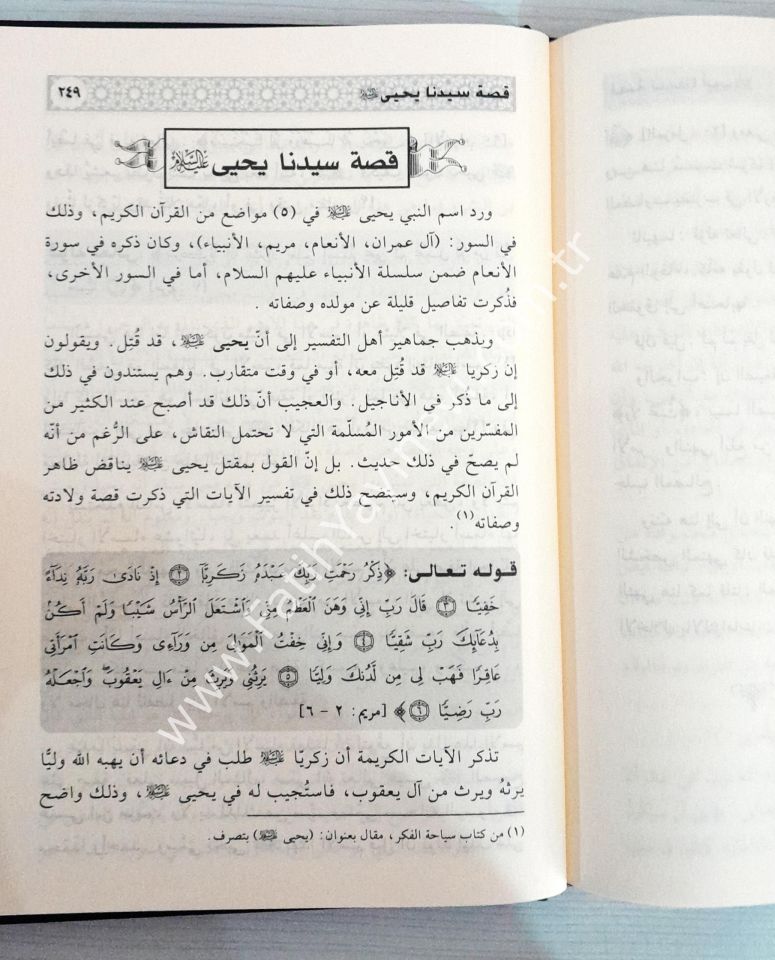 قصة سيدنا يحيى عليه السلام
٢٤٩
قصة سيدنا يحيى عليه السلام
ورد اسم النبي يحيى عليه السلام في (٥) مواضع من القرآن الكريم، وذلك
في السور: (آل عمران، الأنعام، مريم، الأنبياء)، وكان ذكره في سورة
الأنعام ضمن سلسلة الأنبياء عليهم السلام، أما في السور الأخرى،
فذُكرت تفاصيل قليلة عن مولده وصفاته .
ويذهب جماهير أهل التفسير إلى أنّ يحيى عليه السلام، قد قُتِل. ويقولون
إن زكريا عليه السلام قد قُتِل معه، أو في وقت متقارب. وهم يستندون في ذلك
إلى ما ذُكر في الأناجيل. والعجيب أنّ ذلك قد أصبح عند الكثير من
المفسّرين من الأمور المُسلّمة التي لا تحتمل النقاش، على الرُّغم من أنه
لم يصحّ في ذلك حديث. بل إنّ القول بمقتل يحيى عليه السلام يناقض ظاهر
القرآن الكريم، وسيتضح ذلك في تفسير الآيات التي ذكرت قصة ولادته
وصفاته(١).
قوله تعالى: ﴿ذِكْرُ رَحْمَتِ رَبِّكَ عَبْدَهُ زَكَرِيَّا ٢ إِذْ نَادَىٰ رَبَّهُ نِدَاءً
خَفِيًّا ٣ قَالَ رَبِّ إِنِّي وَهَنَ الْعَظْمُ مِنِّي وَاشْتَعَلَ الرَّأْسُ شَيْبًا وَلَمْ أَكُنْ
بِدُعَائِكَ رَبِّ شَقِيًّا ٤ وَإِنِّي خِفْتُ الْمَوَالِيَ مِن وَرَاءِي وَكَانَتِ امْرَأَتِي
عَاقِرًا فَهَبْ لِي مِن لَّدُنكَ وَلِيًّا ٥ يَرِثُنِي وَيَرِثُ مِنْ ءَالِ يَعْقُوبَ ۖ وَاجْعَلْهُ
رَبِّ رَضِيًّا ٦﴾ [مريم: ٢ - ٦]
تذكر الآيات الكريمة أن زكريّا عليه السلام طلب في دعائه أن يهبه الله وليًّا
يرثهُ ويرث من آل يعقوب، فاستُجيب له في يحيى عليه السلام، وذلك واضح
(١) من كتاب سياحة الفكر، مقال بعنوان: (يحيى عليه السلام) بتصرف.